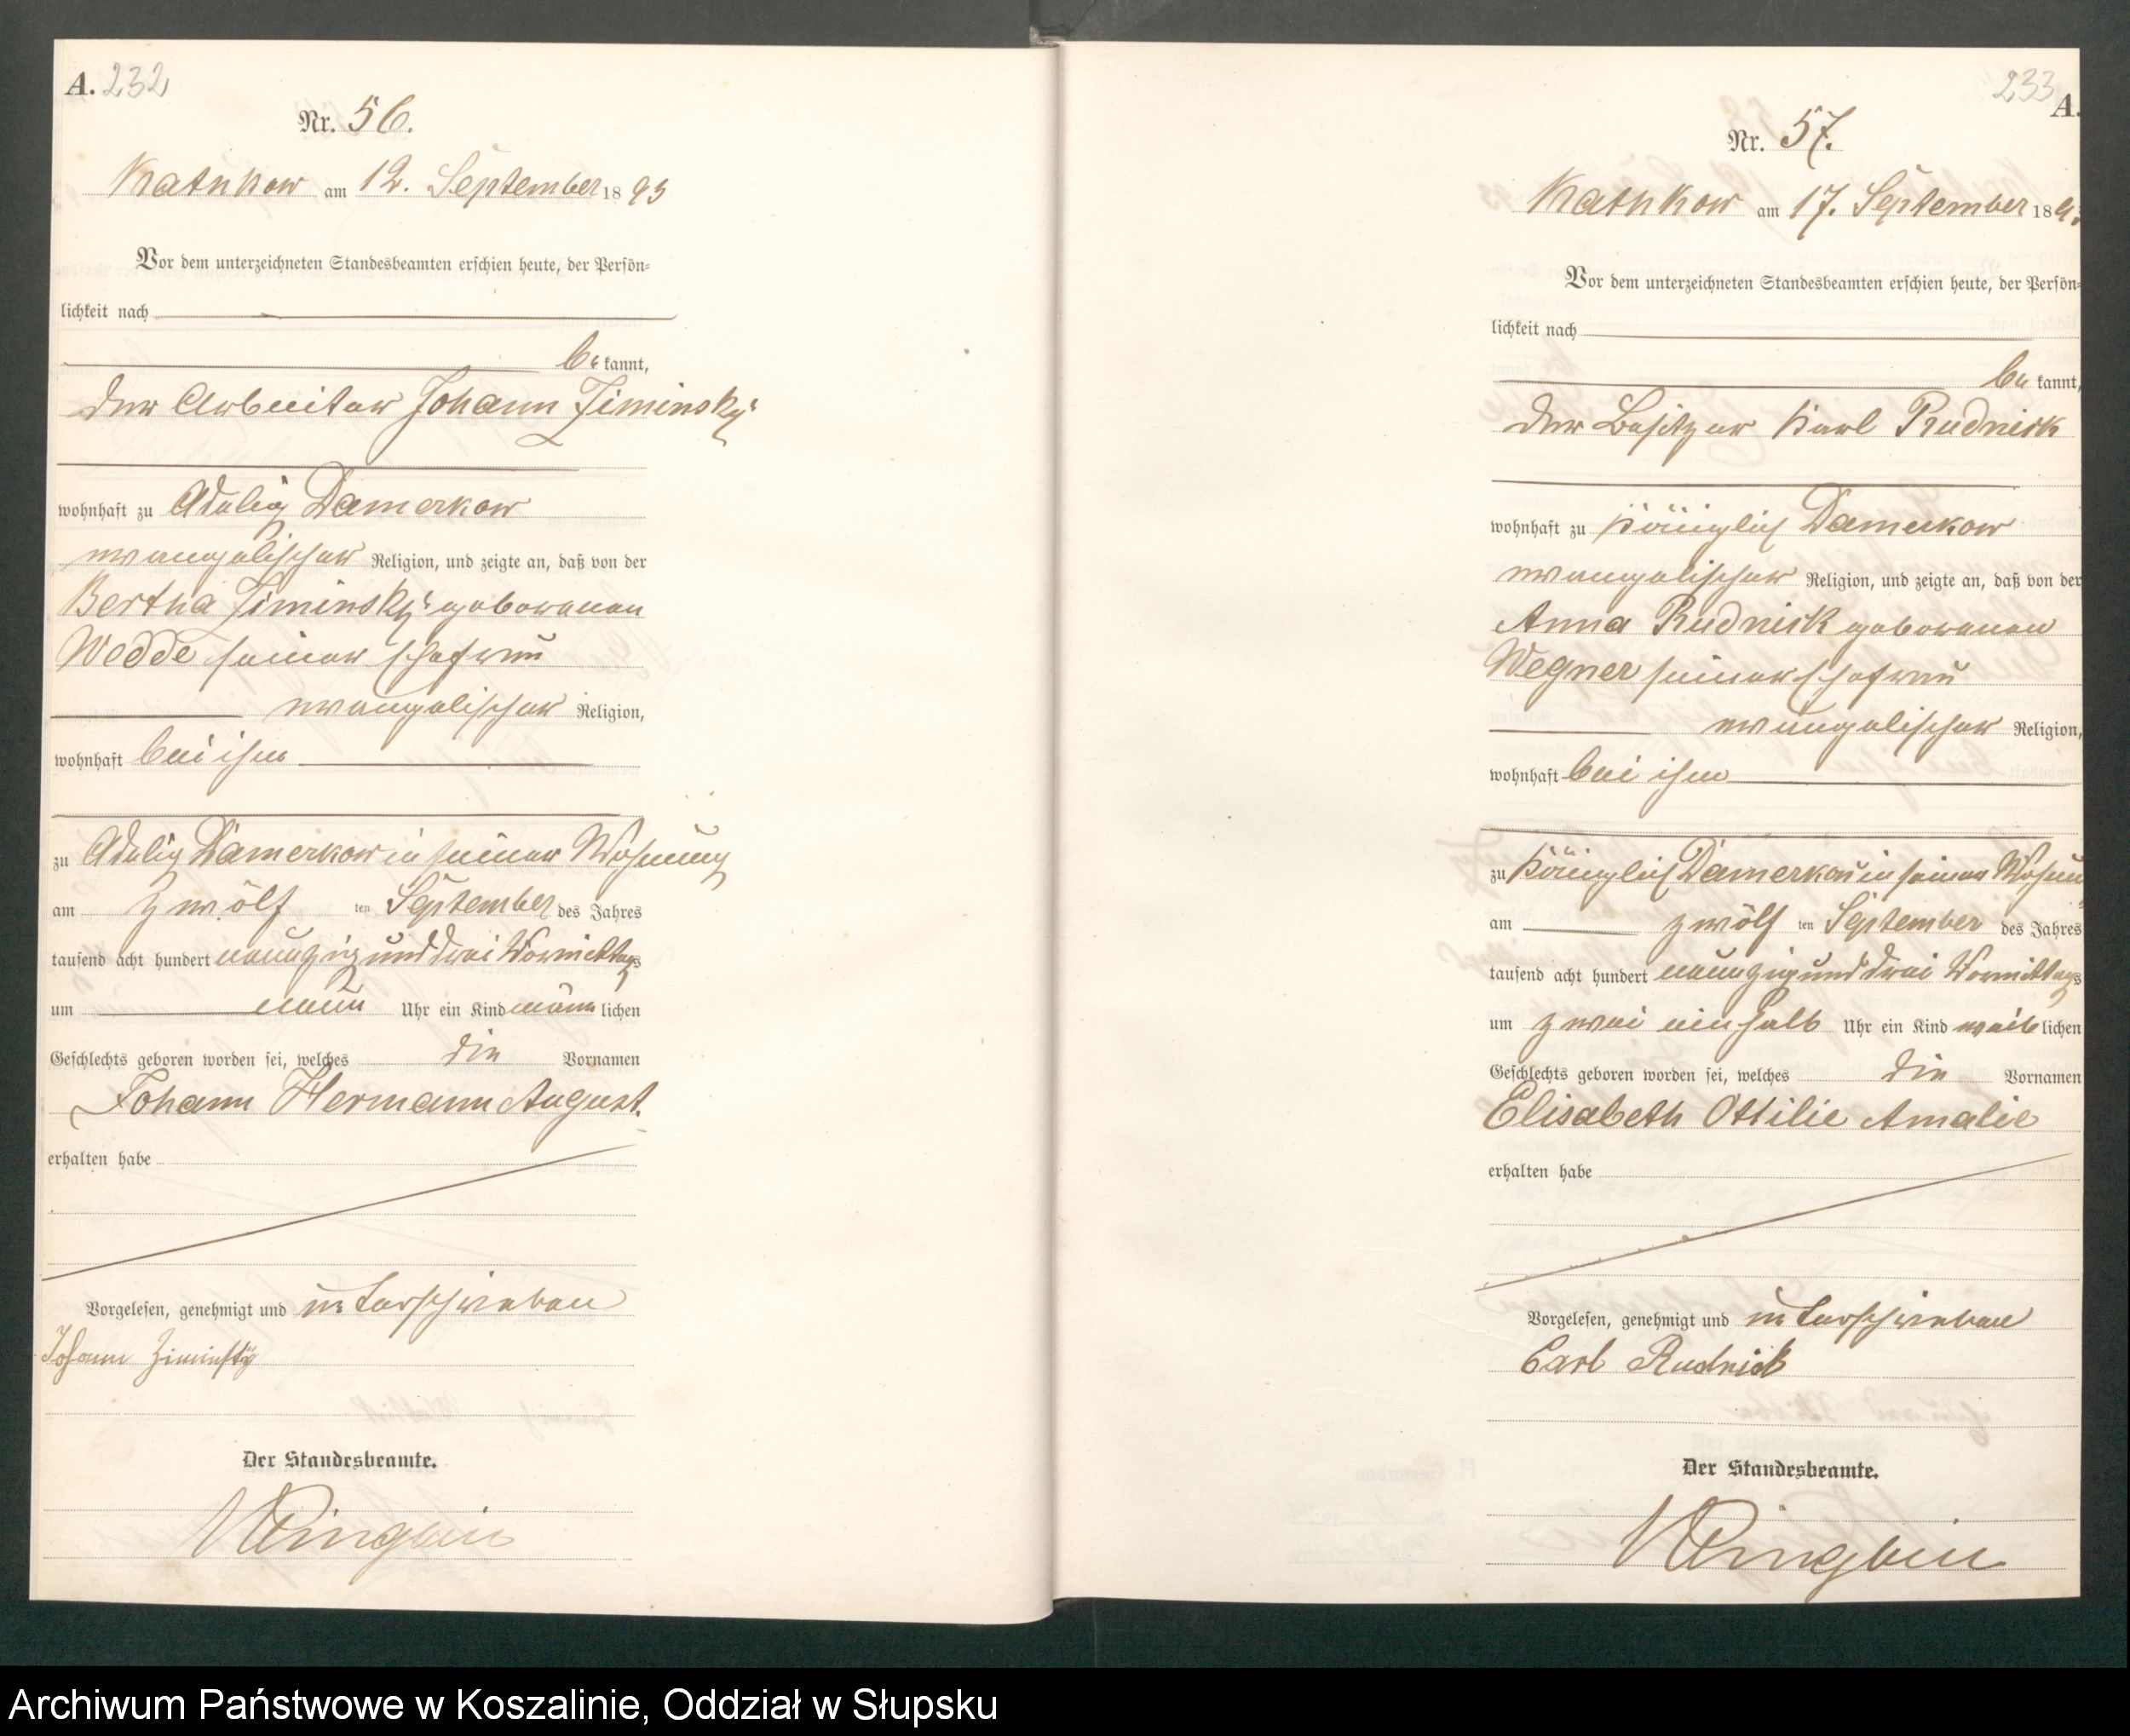 A. 232
Nr. 56.
Kathkow am 12. September 1893
Vor dem unterzeichneten Standesbeamten erschien heute, der Persön-
lichkeit nach
be kannt,
der Arbeiter Johann Ziminsky
wohnhaft zu Adelig Damerkow
evangelischer Religion, und zeigte an, daß von der
Bertha Ziminsky geborenen
Wedde seiner Ehefrau
evangelischer Religion,
wohnhaft bei ihm
zu Adelig Damerkow in seiner Wohnung
am zwölf ten September des Jahres
tausend acht hundert neunzig und drei Vormittags
um neun Uhr ein Kind männ lichen
Geschlechts geboren worden sei, welches die Vornamen
Johann Hermann August.
erhalten habe
Vorgelesen, genehmigt und unterschrieben
Johann Ziminsky
Der Standesbeamte.
233 A.
Nr. 57.
Kathkow am 17. September 1893
Vor dem unterzeichneten Standesbeamten erschien heute, der Persön-
lichkeit nach
be kannt,
der Besitzer Karl Rudnick
wohnhaft zu Königlich Damerkow
evangelischer Religion, und zeigte an, daß von der
Anna Rudnick geborenen
Wegner seiner Ehefrau
evangelischer Religion,
wohnhaft bei ihm
zu Königlich Damerkow in seiner Wohnung
am zwölf ten September des Jahres
tausend acht hundert neunzig und drei Vormittags
um zwei einhalb Uhr ein Kind weib lichen
Geschlechts geboren worden sei, welches die Vornamen
Elisabeth Ottilie Amalie
erhalten habe
Vorgelesen, genehmigt und unterschrieben
Carl Rudnick
Der Standesbeamte.
Archiwum Państwowe w Koszalinie, Oddział w Słupsku